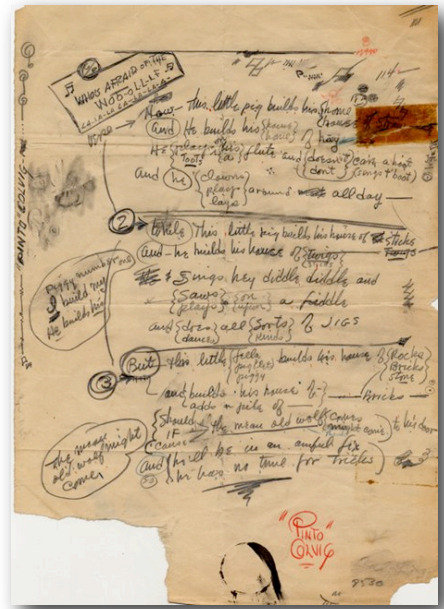 WHO'S AFRAID OF THE
WOO-OLL-LF
LA-LA-LA-LA-LA-LA-LA
Now - this little pig builds his {home house
(And) He builds his {house home} of hay
He {plays Toots} {his a} flute and {doesn't don't} care a hoot
And (he) {clowns plays lays} around all day —
② While This little pig builds his house of Sticks twigs
and - he builds his house of {twigs}
Sings hey diddle diddle and
{Saws plays} {on upon} a fiddle
and {does dances} all {Sorts Kinds} of JIGS
Piggy number one
I build my
He builds his
③ But - this little {fella piglet piggy} builds his house of {Rocks Bricks Stone
and builds his house of Bricks —
adds a pile of
{Should IF} the mean old wolf {comes might come} to his door
comes
(and) he'll be in an awful fix
so he has no time for tricks
the mean
old wolf might
come
"PINTO COLVIG"
"PINTO
COLVIG"
8530